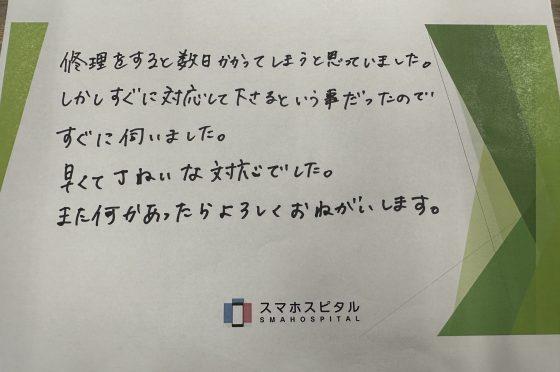 修理をすると数日かかってしまうと思っていました。
しかしすぐに対応して下さるという事だったので
すぐに伺いました。
早くてさねいな対応でした。
また何かあったらよろしくおねがいします。
スマホスピタル
SMAHOSPITAL